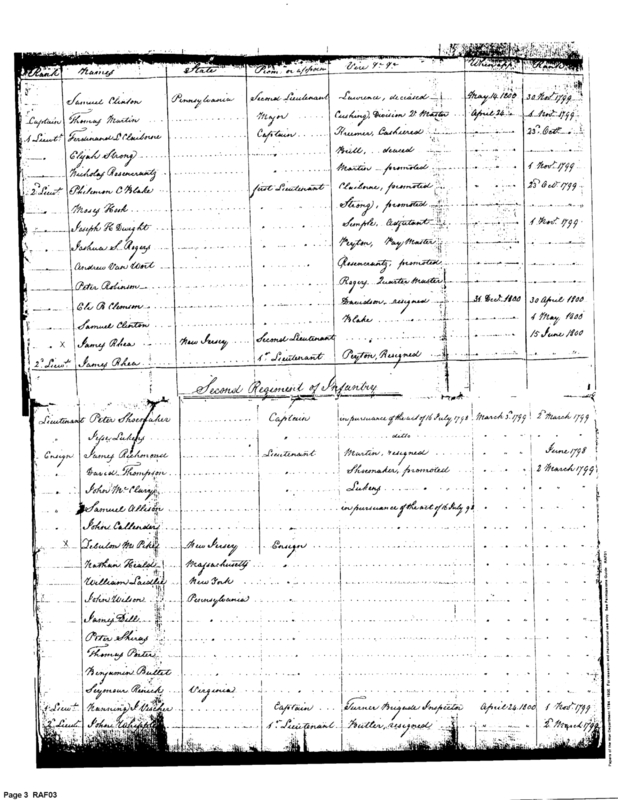 Rank Names State Prom. or appoin Vice &c. &c. When app. Rank
Samuel Clinton Pennsylvania Second Lieutenant Lawrence, deceased May 14. 1800 30 Nov. 1799
Captain Thomas Martin Major Cushing, Division Q. Master April 24 1 Nov. 1799
1 Lieut. Ferdinand L. Claiborne Captain Kreemer, Cashiered 23 Oct.
" Elijah Strong Britt, deceased
" Nicholas Rosencrantz Martin promoted 1 Nov. 1799
2d Lieut. Philemon C. Blake first Lieutenant Claiborne, promoted 23 Oct. 1799
" Moses Hook Strong, promoted
" Joseph H. Dwight Semple, Adjutant 1 Nov. 1799
" Joshua S. Rogers Peyton, Pay Master
" Andrew Van Wort Rosencrantz, promoted
" Peter Robinson Rogers Quarter Master
" Eli B. Clemson Davidson, resigned 31 Dec. 1800 30 April 1800
" Samuel Clinton Blake 4 May 1800
" x James Rhea New Jersey Second Lieutenant 15 June 1800
2d Lieut. James Rhea 1st Lieutenant Peyton, Resigned
Second Regiment of Infantry
Lieutenant Peter Shoemaker Captain in pursuance of the act of 16 July 1798 March 3d. 1799 2d March 1799
" Jesse Lukens " ditto
Ensign James Richmond Lieutenant Martin, resigned June 1798
" David Thompson Shoemaker, promoted 2 March 1799
" John McClary Lukens
" Samuel Allison in pursuance of the act of 16 July 98
" John Callender
" x Zebulon M. Pike New Jersey Ensign
Nathan Heald Massachusetts
William Laidlie New York
John Wilson Pennsylvania
James Dill
Peter Shiras
Thomas Porter
Benjamin Bullet
Seymour Renick Virginia
1 Lieut. Nanning J. Visscher Captain Turner Brigade Inspector April 24. 1800 1 Nov. 1799
2d Lieut. John Whipple 1st Lieutenant Butler, resigned 2d March 1799
Page 3 RAF03